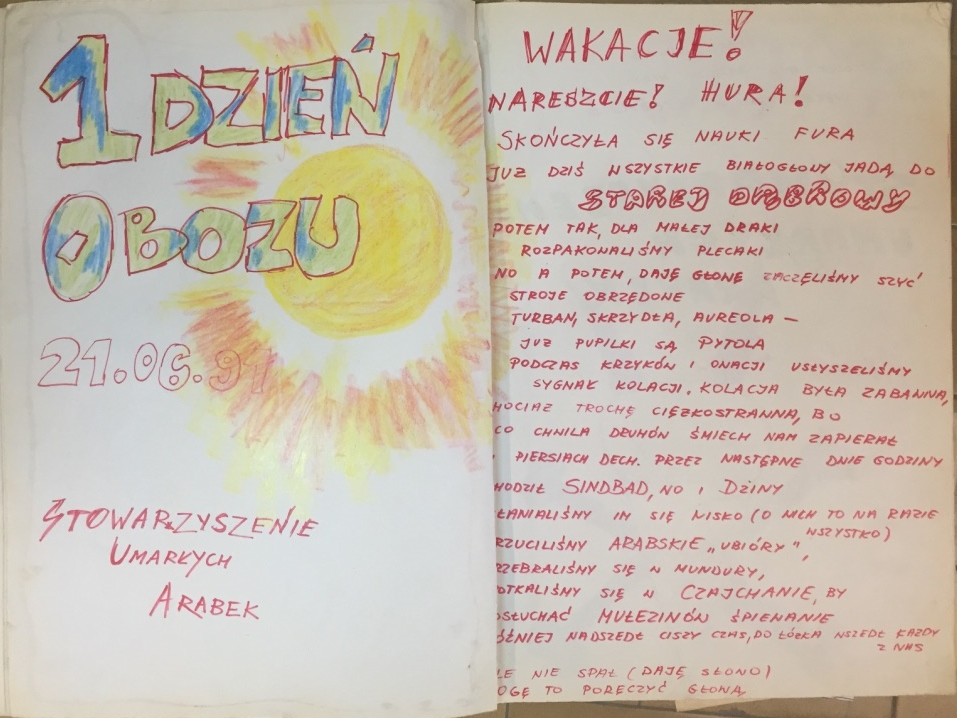 1 DZIEŃ
OBOZU
21.06.91
STOWARZYSZENIE
UMARŁYCH
ARABEK
WAKACJE!
NARESZCIE! HURA!
SKOŃCZYŁA SIĘ NAUKI FURA
JUŻ DZIŚ WSZYSTKIE BIAŁOGŁOWY JADĄ DO
STAREJ DĄBROWY
POTEM TAK, DLA MAŁEJ DRAKI
ROZPAKOWALIŚMY PLECAKI
NO A POTEM, DAJĘ GŁOWĘ ZACZĘLIŚMY SZYĆ
STROJE OBRZĘDOWE
TURBAN, SKRZYDŁA, AUREOLA —
JUŻ PUPILKI SĄ PYTOLA
PODCZAS KRZYKÓW I OWACJI USŁYSZELIŚMY
SYGNAŁ KOLACJI. KOLACJA BYŁA ZABAWNA,
HOCIAŻ TROCHĘ CIĘŻKOSTRAWNA, BO
CO CHWILA DRUHÓW ŚMIECH NAM ZAPIERAŁ
PIERSIACH DECH. PRZEZ NASTĘPNE DWIE GODZINY
HODZIŁ SINDBAD, NO I DŻINY
ŁANIALIŚMY IM SIĘ NISKO (O NICH TO NA RAZIE
WSZYSTKO)
RZUCILIŚMY ARABSKIE „UBIÓRY",
RZEBRALIŚMY SIĘ W MUNDURY,
OTKALIŚMY SIĘ W CZAJCHANIE, BY
OSŁUCHAĆ MUŁEZINÓW ŚPIEWANIE
ÓŹNIEJ NADSZEDŁ CISZY CZAS, DO ŁÓŻKA WSZEDŁ KAŻDY
Z NAS
LE NIE SPAŁ (DAJĘ SŁOWO)
OGĘ TO PORĘCZYĆ GŁOWĄ,